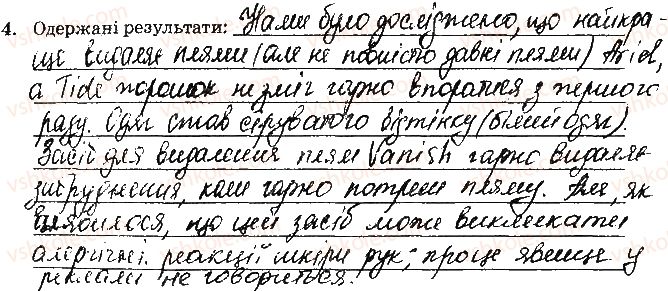 4. Одержані результати: Нами було досліджено, що найкра-
ще видаляє плями (але не повністю давні плями) Ariel,
а Tide порошок не зміг гарно впоратися з першого
разу. Одяг став сіруватого відтінку (білий одяг).
Засіб для видалення плям Vanish гарно видаляє
забруднення, коли гарно потерти пляму. Але, як
виявилося, що цей засіб може викликати
алергічні реакції шкіри рук; про це явище у
рекламі не говориться.